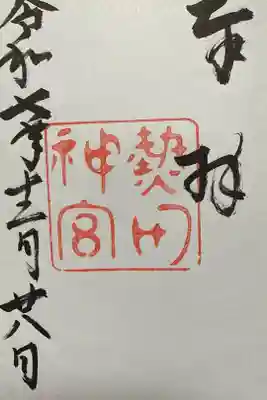 奉拝
熱田
神宮
令和七年十二月廿八日